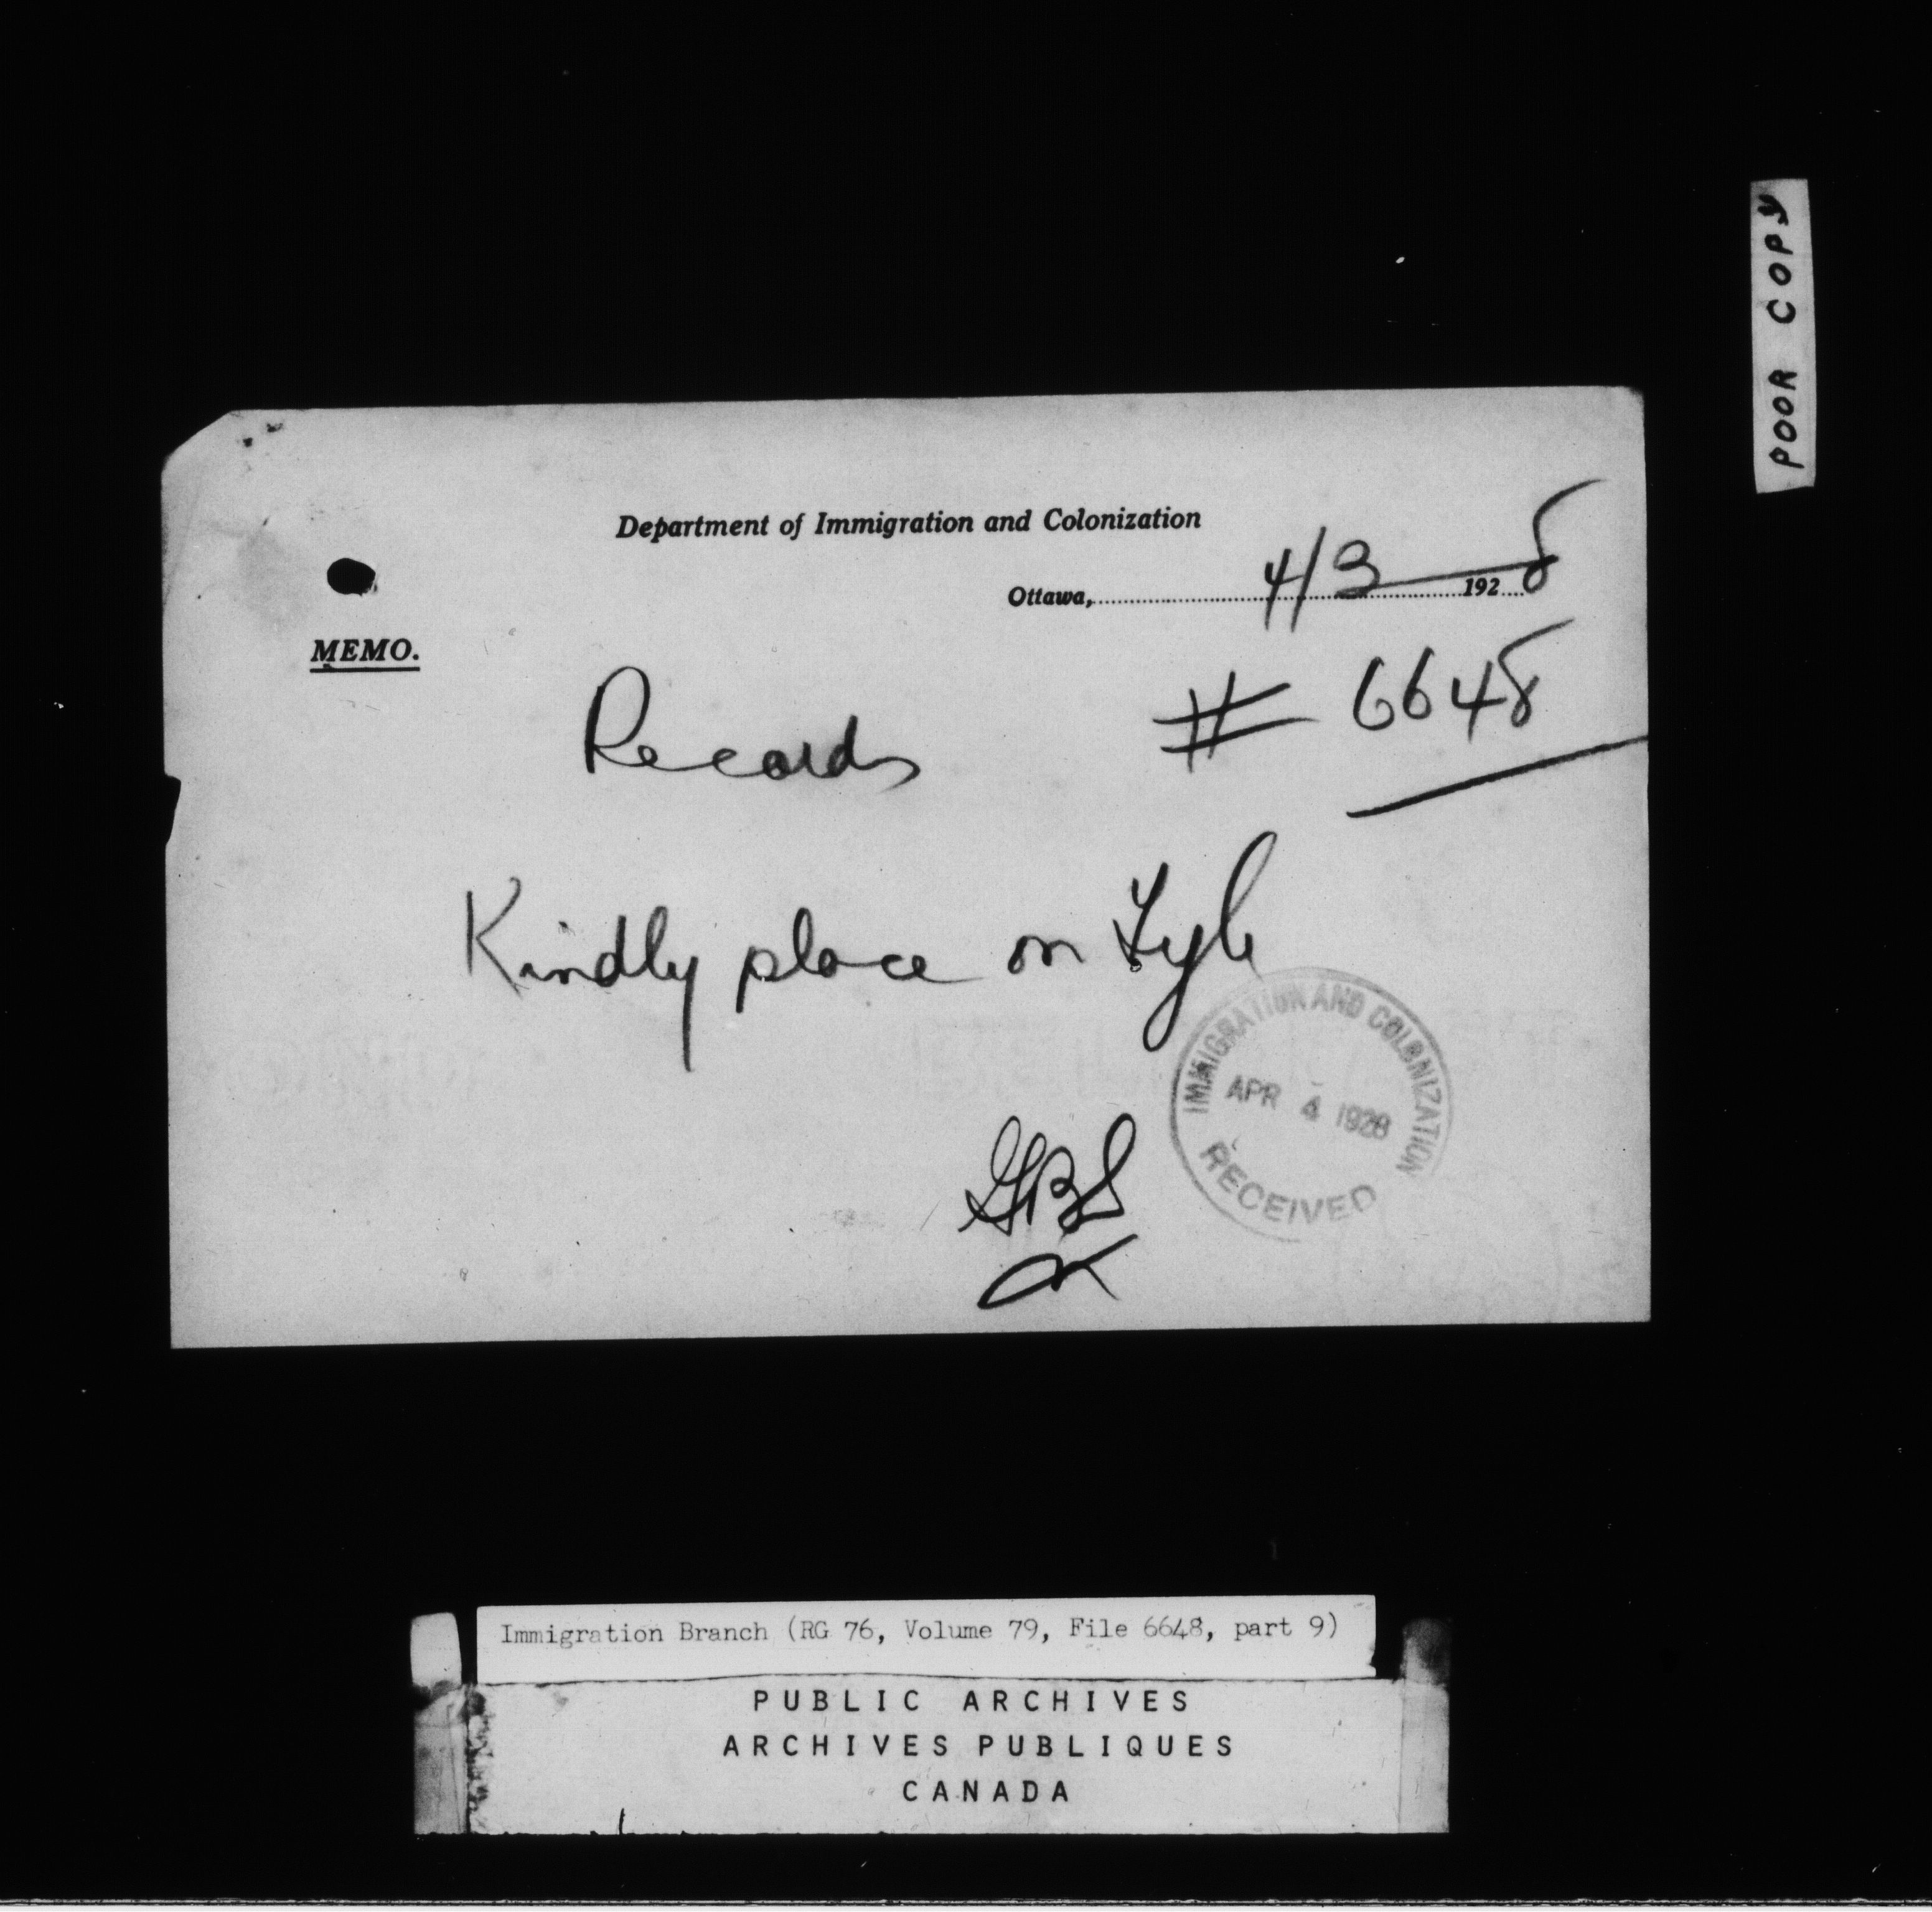 POOR COPY
Department of Immigration and Colonization
Ottawa, 4/3 1928
MEMO.
Records # 6648
Kindly place on Fyle
IMMIGRATION AND COLONIZATION
APR 4 1928
RECEIVED
GBS
Immigration Branch (RG 76, Volume 79, File 6648, part 9)
PUBLIC ARCHIVES
ARCHIVES PUBLIQUES
CANADA